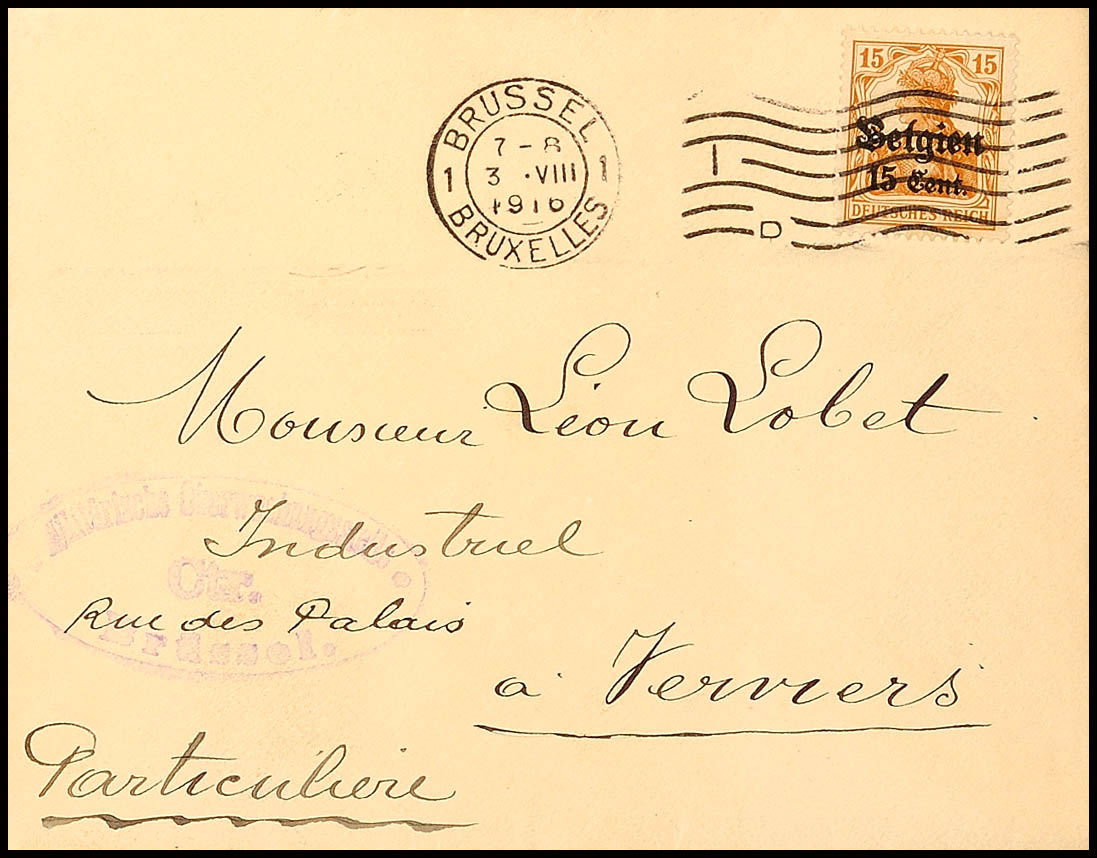 BRUSSEL
7-8
1 3 .VIII 1
1916
BRUXELLES
15 15
Belgien
15 Cent.
DEUTSCHES REICH
D
Monsieur Léon Lobet
Industriel
Rue des Palais
à Verviers
Particulière
Militärische
Brüssel.